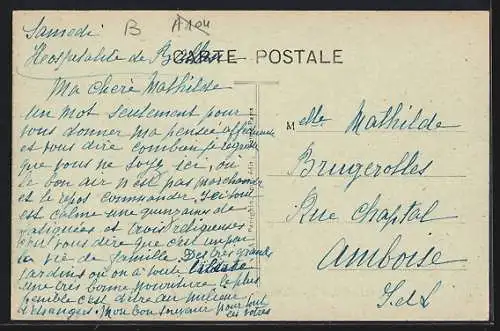 Samedi
B
Hospitalité de
CARTE POSTALE
Ma chère Mathilde
un mot seulement pour
vous donner ma pensée affectueuse
et vous dire combien je regrette
que vous ne soyez ici, où
le bon air n'est pas marchandé
et le repos commander. Ici tout
est calme une quinzaine de
fatiguées et trois religieuses
c'est vous dire que c'est un peu
la vie de famille. Des très grands
jardins où on a toute liberté
une très bonne nourriture le plus
pénible c'est d'être au milieu
d'étrangers. Mon bon souvenir pour tous
les vôtres
Melle Mathilde
Brugerolles
Rue Chaptal
Amboise
I. d. L